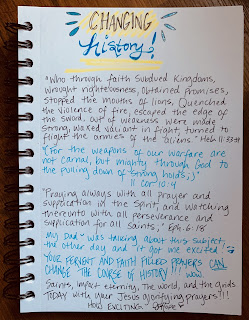 CHANGING
history:
"Who through faith Subdued Kingdoms,
Wrought righteousness, Obtained Promises,
Stopped the mouths of lions, Quenched
the violence of fire, escaped the edge of
the sword, out of weakness were made
Strong, waxed valiant in fight, turned to
flight the armies of the aliens." Heb 11:33-34
"(For the weapons of our warfare are
not carnal, but mighty through God to
the pulling down of strong holds;)"
II Cor 10:4
"Praying always with all prayer and
supplication in the Spirit, and watching
thereunto with all perseverance and
supplication for all saints," Eph 6:18
my Dad was talking about this subject
the other day and it got me excited!
YOUR FERVENT AND FAITH FILLED PRAYERS CAN
CHANGE THE COURSE OF HISTORY!!! WOW
Saints, impact eternity, the world, and the grids
TODAY with your Jesus glorifying prayers!!!
HOW EXCITING!